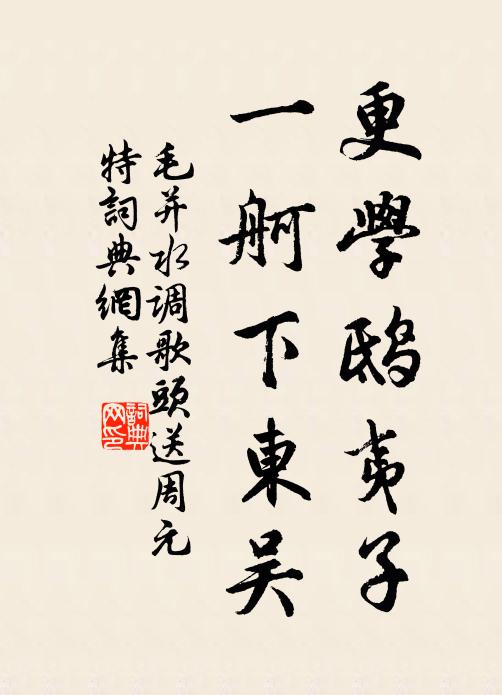 更學鴟夷子
一舸下東吴
毛并水调歌頭送周元
特詞典網集
詞典网印